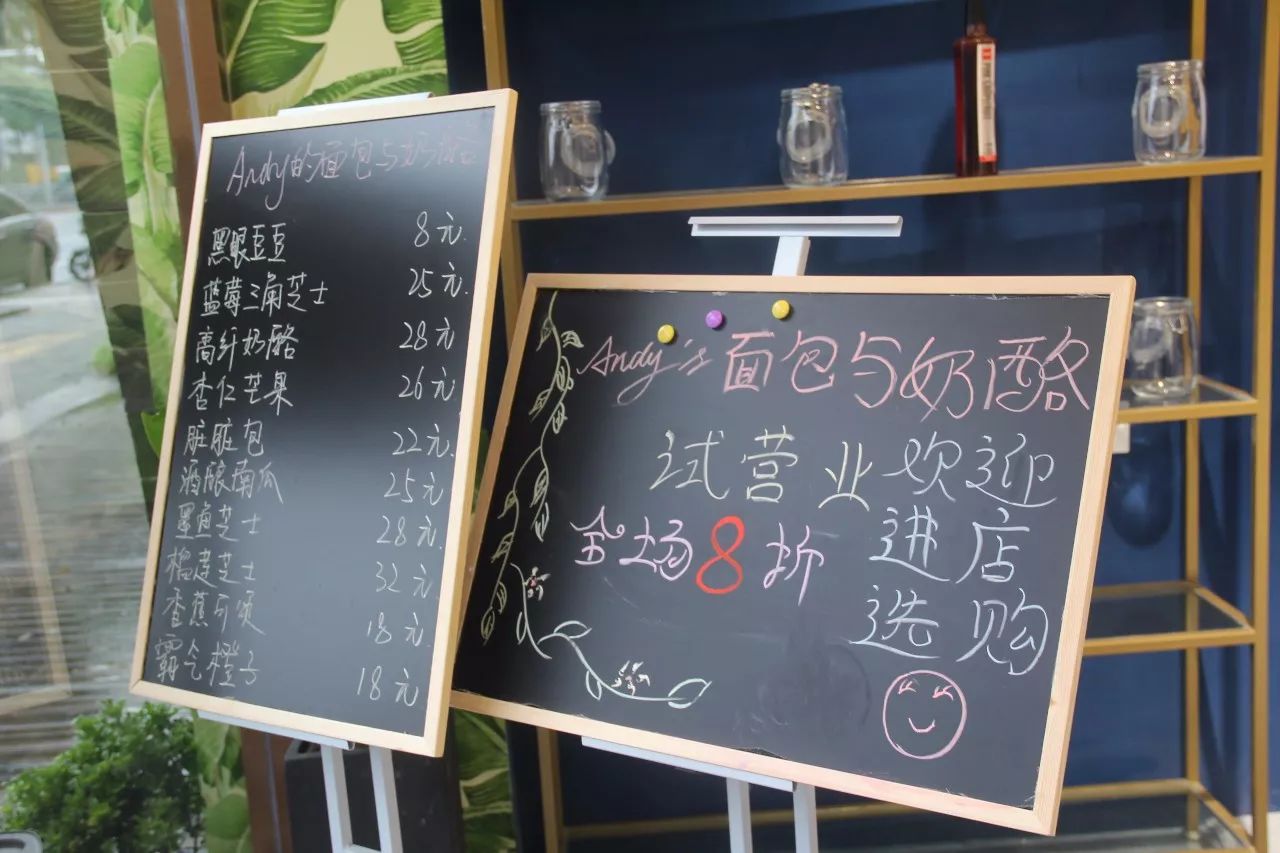 Andy的面包与奶酪
黑眼豆豆 8元
蓝莓三角芝士 25元
高纤奶酪 28元
杏仁芒果 26元
脏脏包 22元
酒酿南瓜 25元
墨鱼芝士 28元
榴莲芝士 32元
香蕉可颂 18元
霸气橙子 18元
Andy's面包与奶酪
试营业欢迎
全场8折 进店
选购